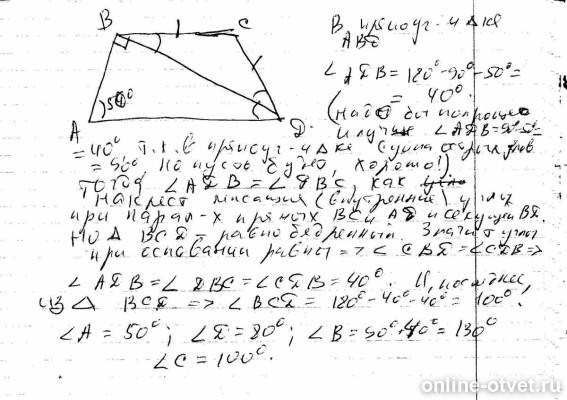 B
C
A
D
50°
В прямоуг-м Δке
ABD
∠ADB = 180°-90°-50° =
= 40°
(Надо бы попроще
и лучше ∠ADB=90°-50°=
= 40° т.к. в прямоуг-м Δке сумма острых углов
= 90°, но пусть будет, хорошо!)
Тогда ∠ADB = ∠DBC, как
накрест лежащие (внутренние) углы
при парал-х прямых BC и AD и секущей BD.
Но Δ BCD - равнобедренный. Значит углы
при основании равны => ∠CBD=∠CDB =>
∠ADB = ∠DBC = ∠CDB = 40°. И, последнее,
из Δ BCD => ∠BCD = 180°-40°-40° = 100°.
∠A = 50°; ∠D = 80°; ∠B = 90°+40° = 130°
∠C = 100°.
online-otvet.ru